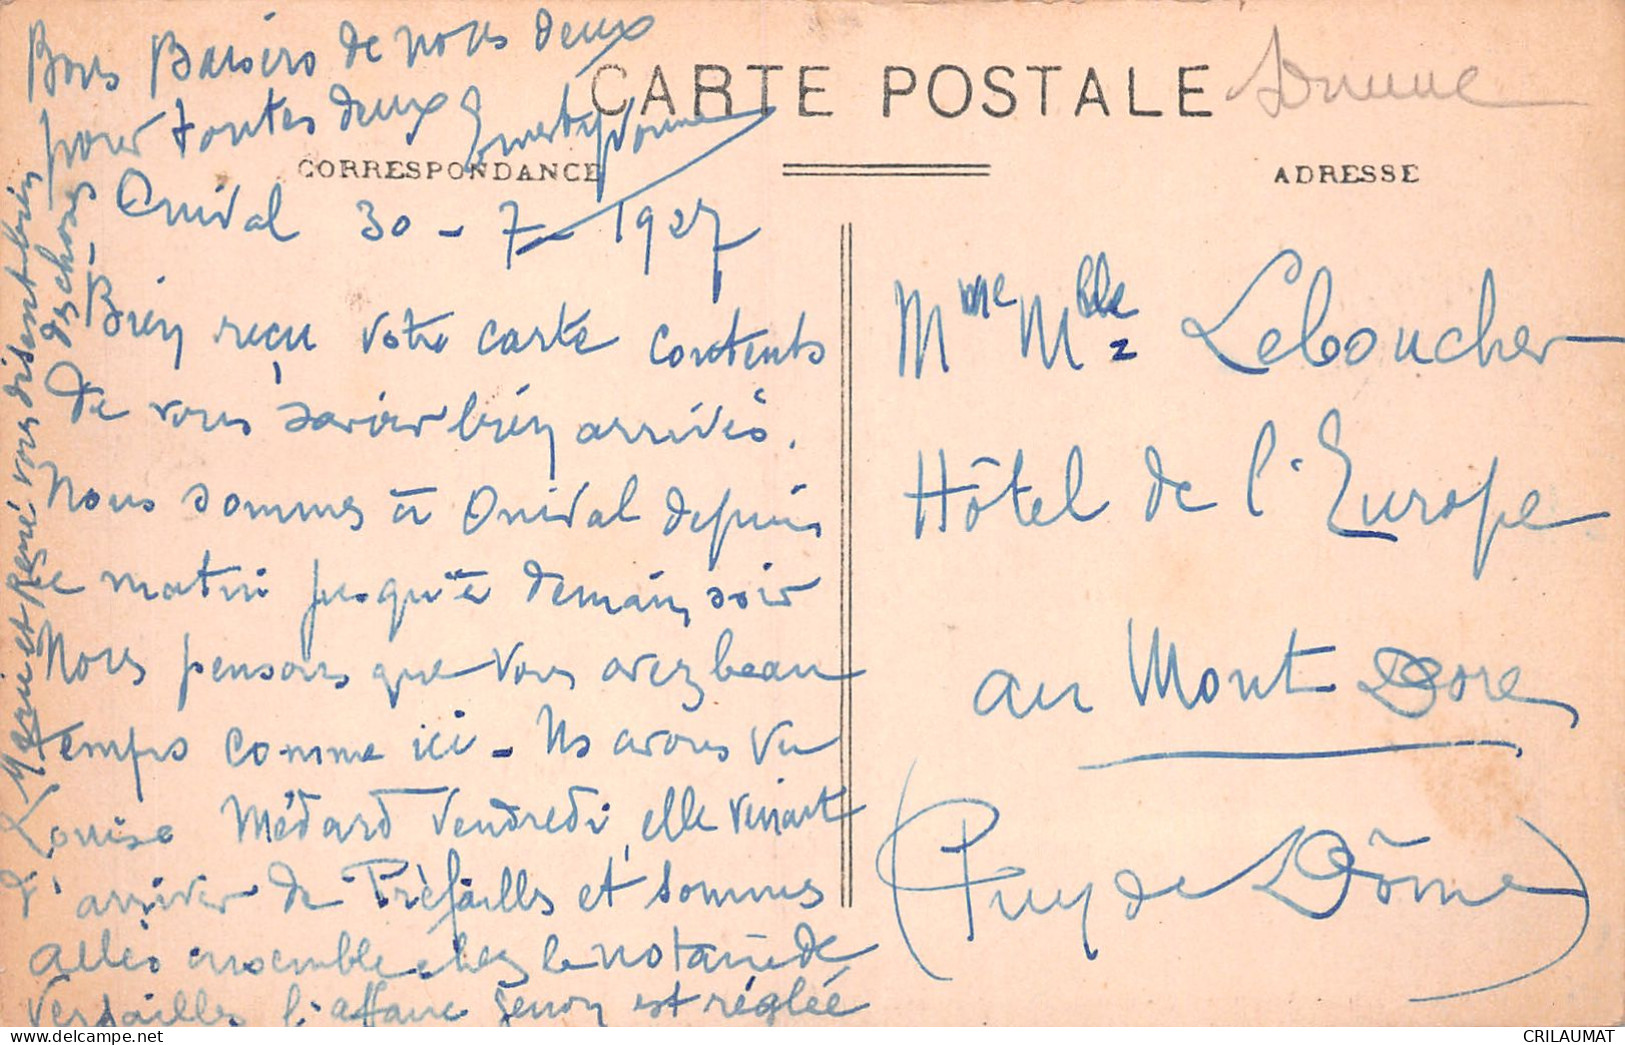 Bons Baisers de nous deux
pour toutes deux
CARTE POSTALE
Somme
CORRESPONDANCE
ADRESSE
Onival 30-7-1927
Bien reçu votre carte contents
de vous savoir bien arrivés.
Nous sommes à Onival depuis
ce matin jusqu'à demain soir
Nous pensons que vous avez beau
temps comme ici - Ns avons vu
Louise Médard Vendredi, elle venait
d'arriver de Préfailles et sommes
allés ensemble chez le notaire de
Versailles l'affaire est réglée
Marie et René vous disent bien
des choses
Mme Mlle Leboucher
Hôtel de l'Europe
au Mont Dore
(Puy de Dôme)
CRILAUMAT